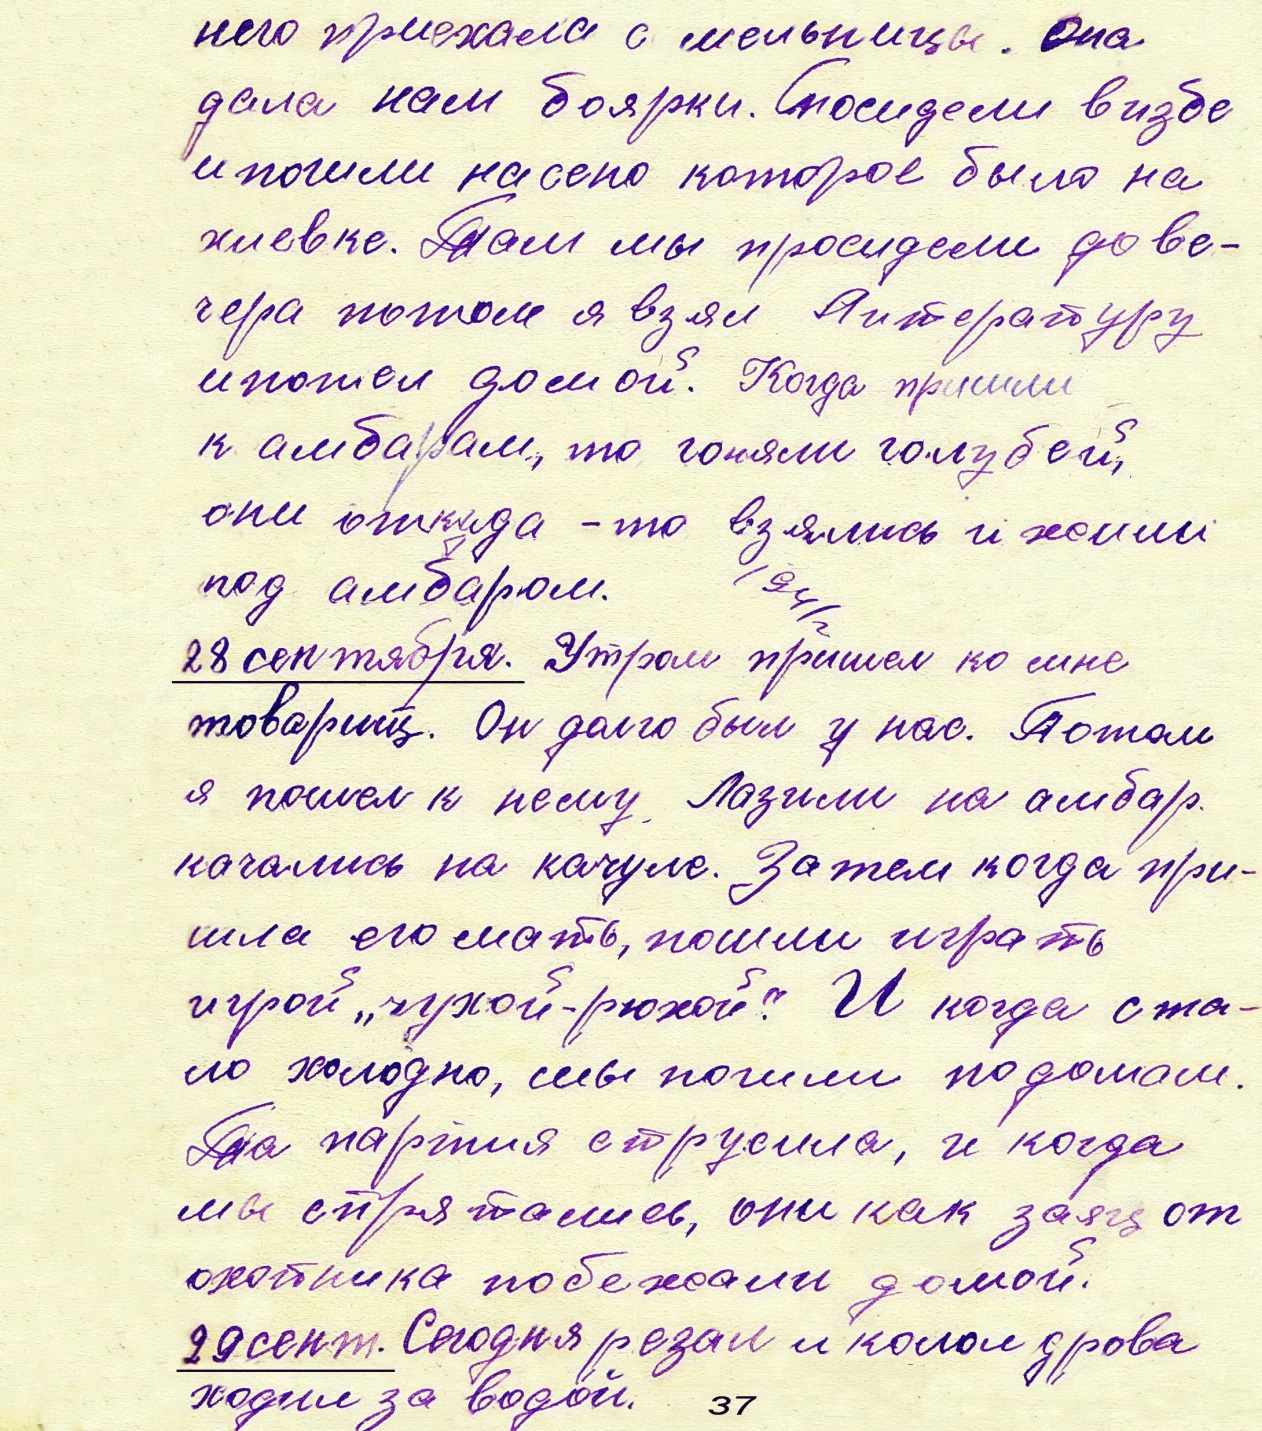 него приехала с мельницы. Она
дала нам боярки. Посидели в избе
и пошли на сено которое было на
хлевке. Там мы просидели до ве-
чера потом я взял Литературу
и пошел домой. Когда пришли
к амбарам, то гоняли голубей,
они откуда-то взялись и жили
под амбаром.
28 сентября. Утром пришел ко мне
товарищ. Он долго был у нас. Потом
я пошел к нему. Лазили на амбар.
качались на качуле. Затем когда при-
шла его мать, пошли играть
игрой „чухой-рюхой". И когда ста-
ло холодно, мы пошли по домам.
Та партия струсила, и когда
мы спрятались, они как заяц от
охотника побежали домой.
29 сент. Сегодня резал и колол дрова
ходил за водой.
37